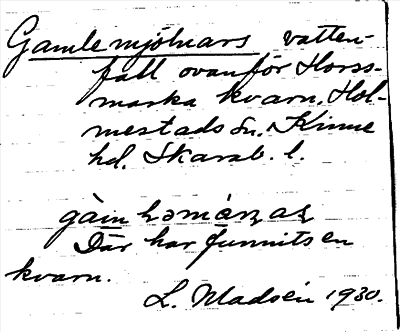 Gamle mjölnars vatten-
fall ovanför Horss-
marka kvarn, Hol-
mestads sn. Kinne
hd. Skarab. l.
Där har funnits en
kvarn.
L. Madsén 1930.